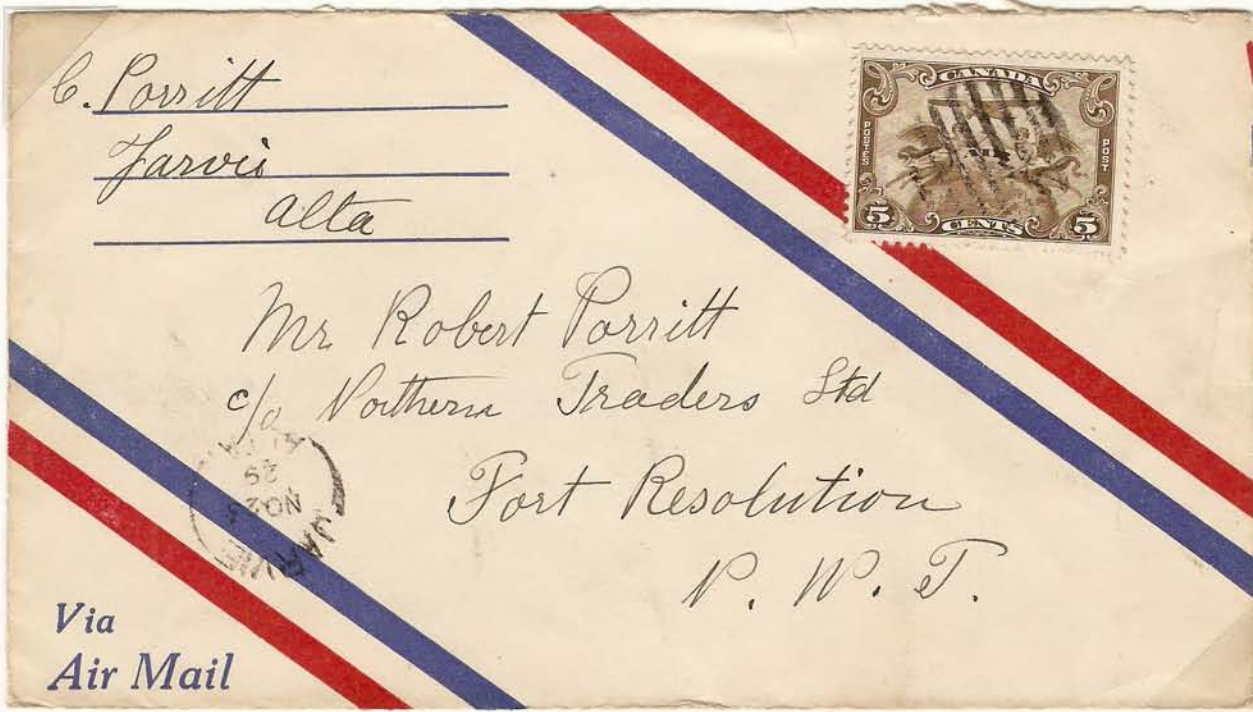 C. Porritt
Jarvis
Alta
CANADA
POSTES
POST
5 CENTS 5
Mr. Robert Porritt
c/o Northern Traders Ltd
Fort Resolution
N. W. T.
JARVIE
NO 23
29
ALTA
Via
Air Mail